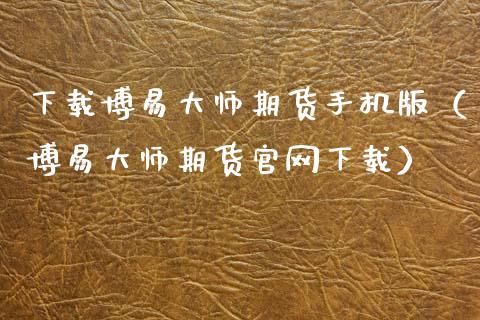 下载博易大师期货手机版（
博易大师期货官网下载）